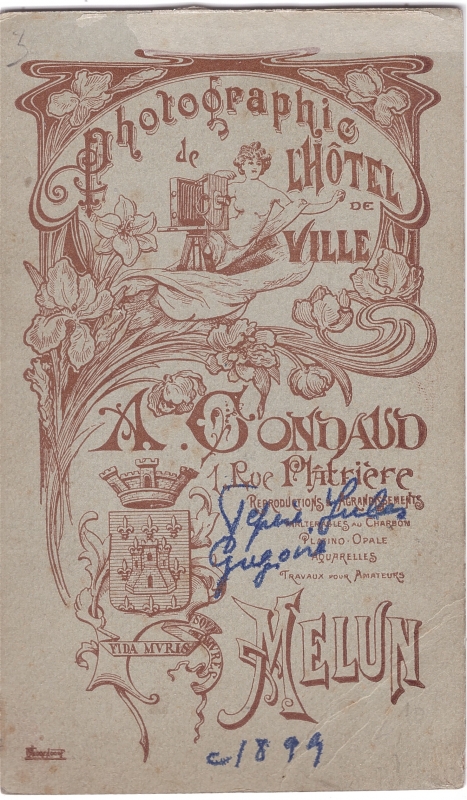 3
Photographie
de
L'HÔTEL
DE
VILLE
A. GONDAUD
1, Rue Platrière
REPRODUCTIONS AGRANDISSEMENTS
INALTÉRABLES AU CHARBON
PLATINO-OPALE
AQUARELLES
TRAVAUX POUR AMATEURS
Pépère Jules
Grégoire
FIDA MVRIS
MELUN
c/1899